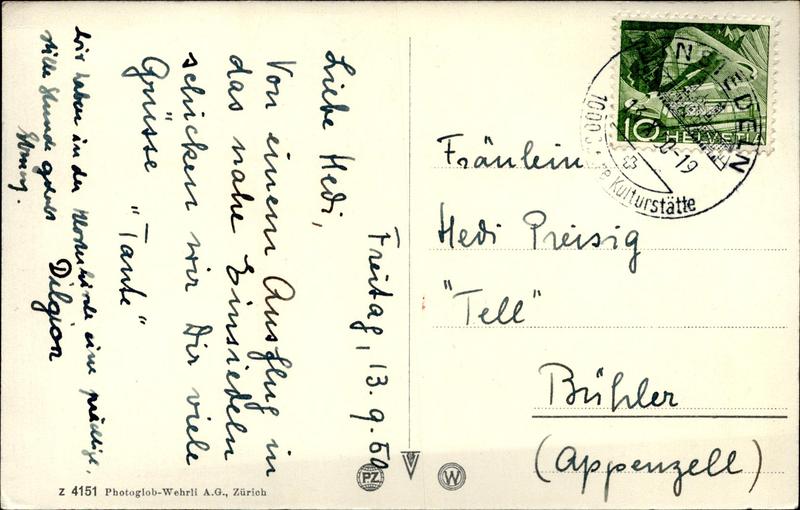 Freitag, 13.9.50
Liebe Hedi,
Von einem Ausflug in
das nahe Einsiedeln
schicken wir Dir viele
Grüsse "Tante"
Dilgion
Wir haben in der Klosterkirche eine prächtige,
stille Stunde
Fräulein
Hedi Preisig
"Tell"
Bühler
(Appenzell)
EINSIEDELN
0-19
1000
Kulturstätte
10 HELVETIA
PZ
W
Z 4151 Photoglob-Wehrli A.G., Zürich